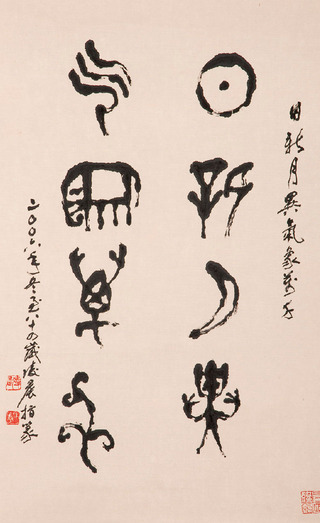 日新月異氣象萬千
日新月異
氣象萬千
二〇〇六年冬至八十四歲